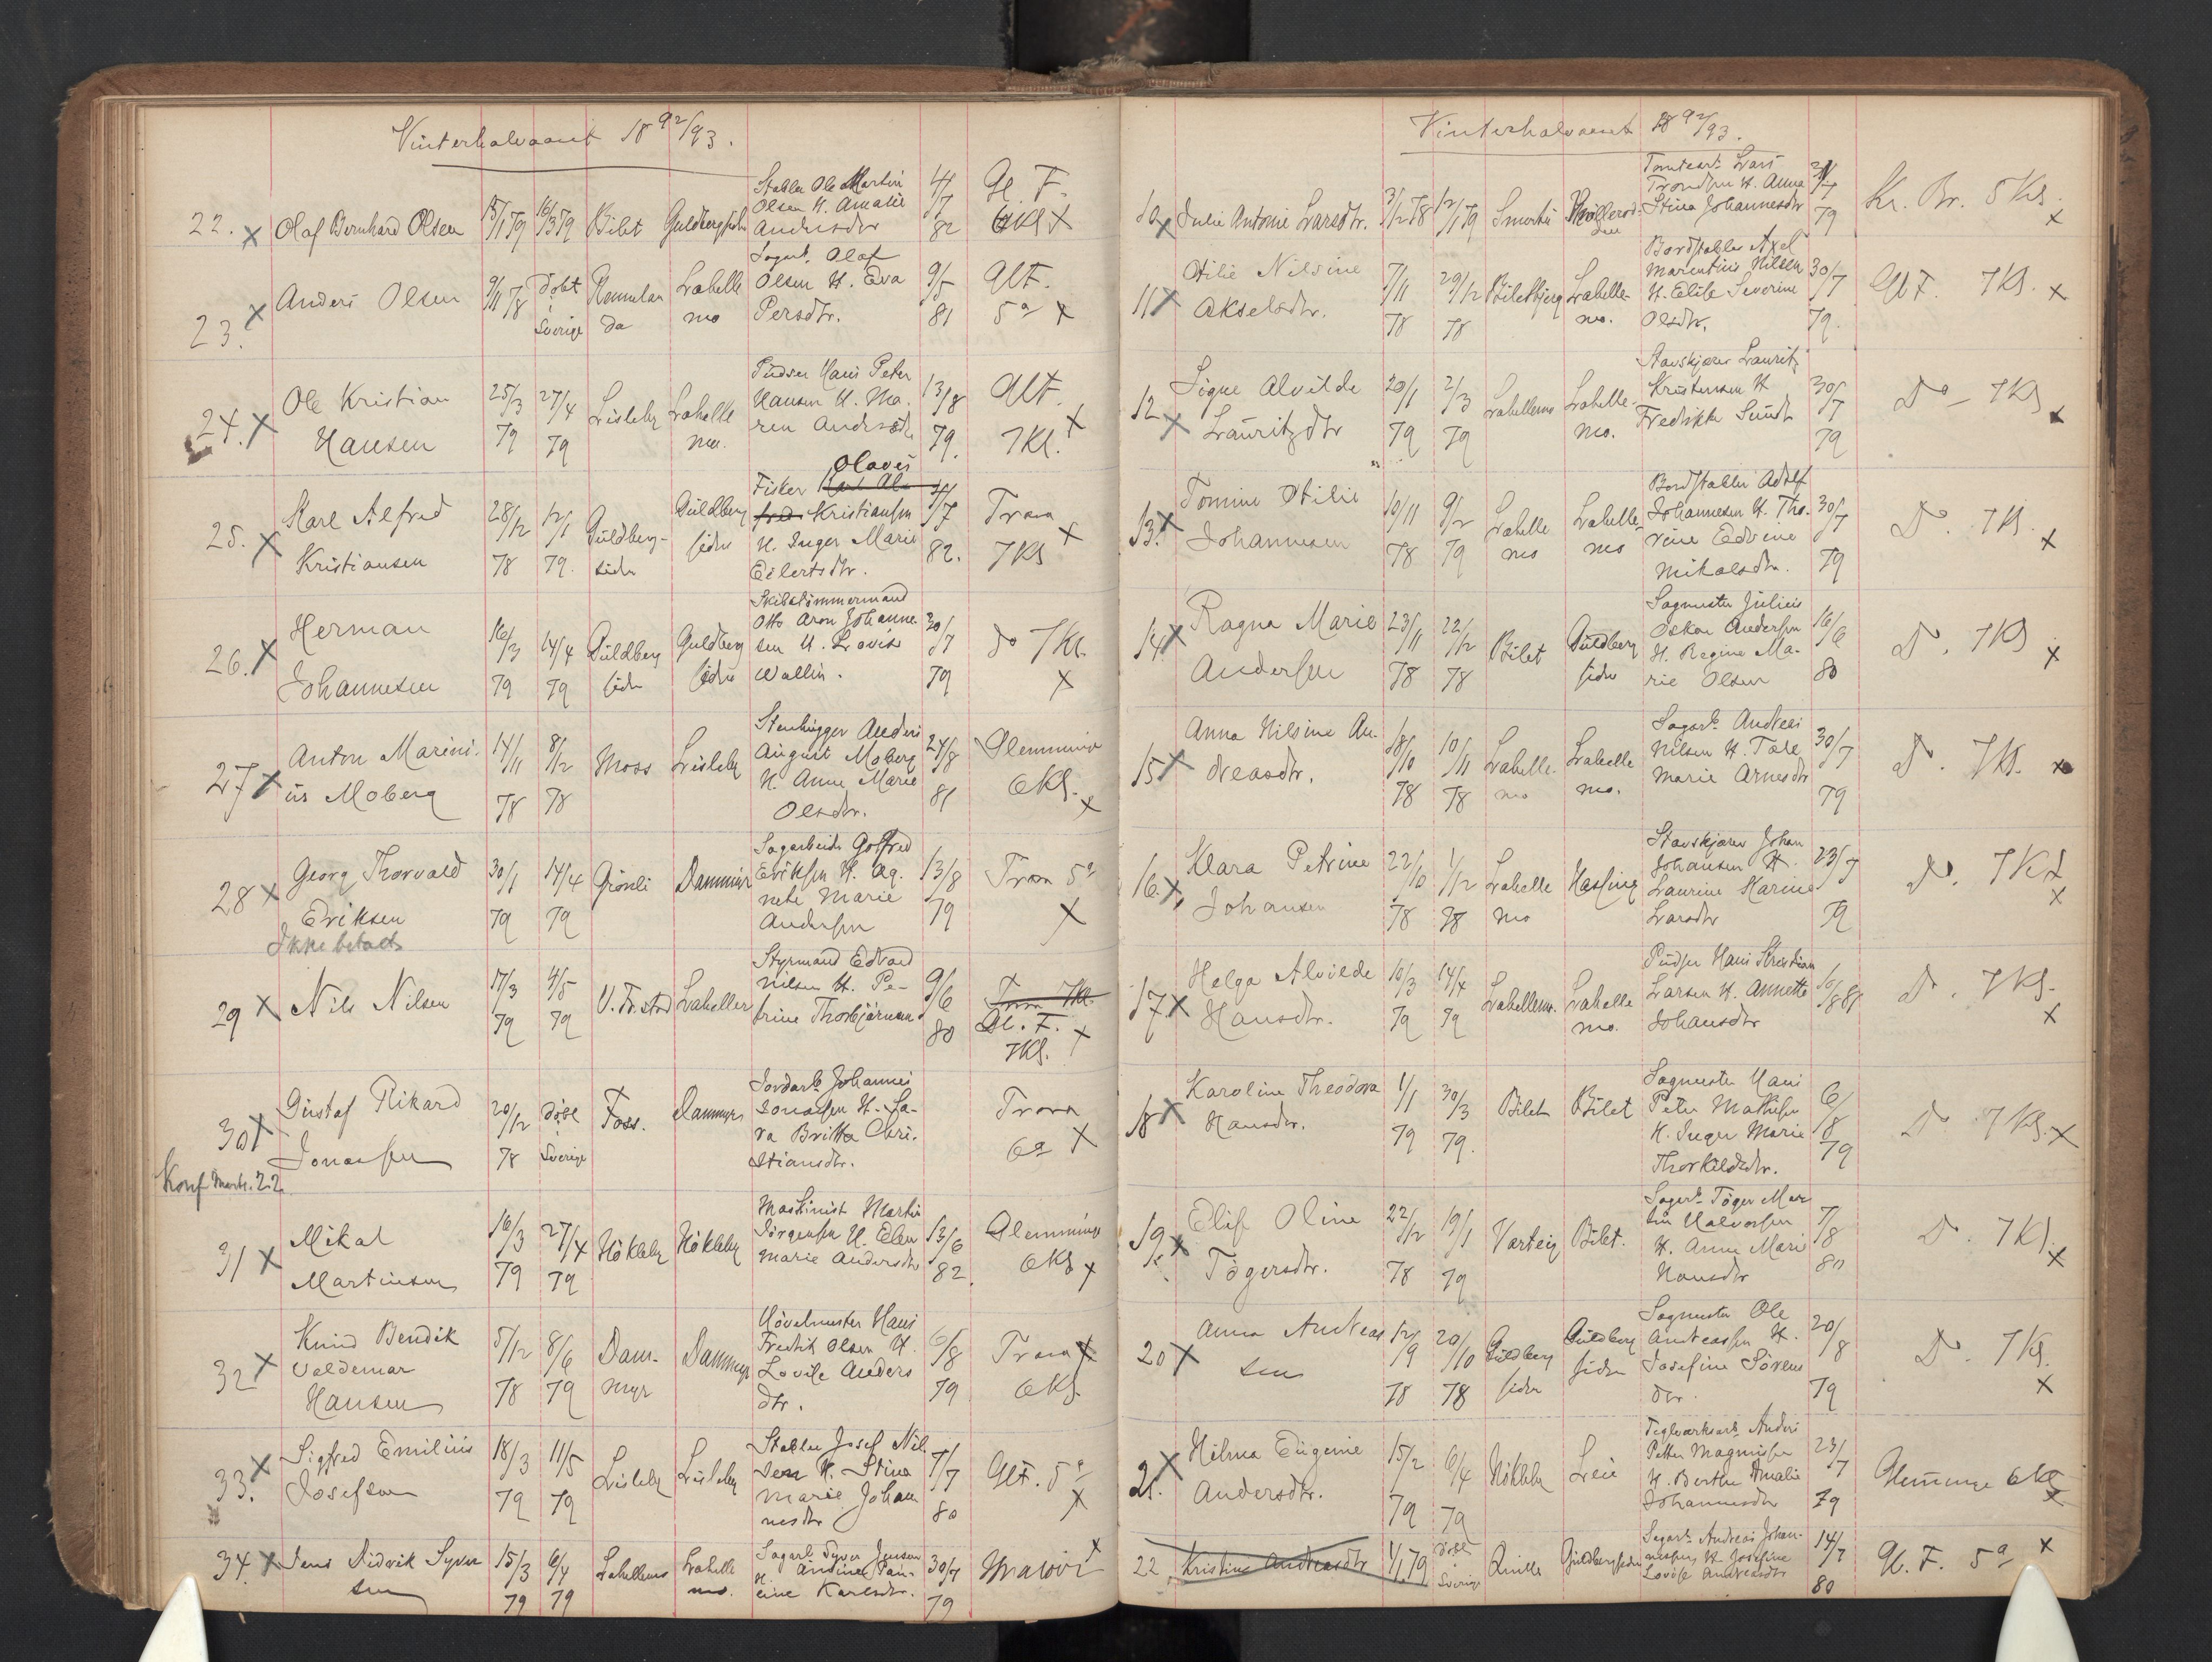 Vinterhalvaaret 18 92/93.
22. x Olaf Bernhard Olsen 15/1 79 16/3 79 Bilet Guldbergsiden Stabler Ole Martin Olsen H. Amalie Andersdtr 4/7 82 Gl. F. 6Kl x
23. x Anders Olsen 9/11 78 döbt i Sverige Lahelle mo Sagarb. Olaf Olsen H. Eva Persdtr. 9/5 81 Gl F. 5a x
24. x Ole Kristian Hansen 25/3 79 27/4 79 Lisleby Lahelle mo. Pudser Hans Peter Hansen H. Ma- ren Andersdtr 13/8 79. Gl F. 7Kl. x
25. x Karl Alfred Kristiansen 28/12 78 12/1 79. Guldberg- siden Guldberg siden Fisker Olaves Kristiansen H. Inger Marie Eilertsdtr. 82. Trara 7Kl x
26. x Herman Johannesen 16/3 79 14/4 79 Guldberg siden Guldberg siden Skibstømmermand Otto Aron Johanne- sen H. Lovise Wallin. 30/7 79 do 7Kl. x
27 x Anton Marini- us Moberg 14/11 78 8/12 78 Moss Lisleby Stenhugger Anders August Moberg H. Anne Marie Olsdtr. 24/8 81 Glemminge 6Kl. x
28 x Georg Thorvald Eriksen 30/1 79 14/4 79 Grönli Dammyr Sagarbeider Gotfred Eriksen H. Ag- nete Marie Andersen 13/8 79 Trara 5a x
Ikke betalt
29 x Nils Nilsen 17/3 79 4/5 79 Lahellen Styrmand Edvard Nilsen H. Pe- trine Thorbjörnsen 9/6 80 Trara 7Kl. Gl. F. 7Kl. x
30 x Gustaf Rikard Jonassen 20/12 78 döbt i Sverige Foss. Dammyr Jordarb. Johannes Jonassen H. Sa- ra Britta Chri- stiansdtr. Trara 6a x
Konf
31 x Mikal Martinsen 16/3 79 27/4 79 Hökleby Hökleby Maskinist Martin Jörgensen H. Elen Marie Andersdtr 13/6 82. Glemminge 6Kl x
32 x Knud Bendik Valdemar Hansen 5/12 78 8/6 79 Dam- myr Dammyr Hövelmester Hans Fredrik Olsen H. Lovise Anders dtr. 6/8 79 Trara x 6Kl
33. x Sigfred Emilius Josefsen 18/3 79 11/5 79 Lisleby Lisleby Stabler Josef Nil- sen H. Stina Marie Johan nesdtr 7/7 80 Gl F. 5a x
34. x Jens Didrik Syver sen 15/3 79 6/4 79 Lahellemo Lahelle mo. Sagarb. Syver Jensen H. Andine Pau- line Karlsdtr. 30/7 79 x
Vinterhalvaaret 18 92/93.
10 x Julie Antonie Larsdtr. 31/12 78 12/1 79 Tomtearb. Lars Trondsen H. Anna Stina Johannesdtr 79 Kr. Br. 5 Kl. x
11 x Otilie Nilsine Akselsdtr. 7/11 78 29/12 78 Biletbjerg Lahelle- mo. Bordstabler Axel Marentius Nilsen H. Elise Severine Olsdtr. 30/7 79. Gl F. 7Kl. x
12 x Signe Alvilde Lauritzdtr 20/1 79 2/3 79 Lahellemo Lahelle- mo. Stavskjærer Lauritz Kristensen H Fredrikke Sundt 30/7 79 Do 7Kl x
13. x Tomine Otilie Johannesen 10/11 78 9/2 79 Lahelle mo Lahelle- mo Bordstabler Adolf Johannesen H. Tho- rine Edvine Nikolsdtr. 30/7 79 Do. 7Kl. x
14. x Ragna Marie Andersen 23/11 78 22/12 78 Bilet Guldberg siden Sagmester Julius Oskar Andersen H. Regine Ma- rie Olsen 16/6 80 Do. 7Kl x
15 x Anna Nilsine An- dreasdtr. 18/10 78 10/11 78 Lahelle- mo Lahelle mo. Sagarb. Andreas Nilsen H. Tale Marie Arnesdtr 30/7 79 Do. 7Kl. x
16. x Klara Petrine Johansen 22/10 78 1/12 78 Lahelle mo Hassing Stavskjærer Johan Johansen H. Laurine Karine Larsdtr 23/7 79 Do. 7Kl x
17 x Helga Alvilde Hansdtr. 10/3 79 14/4 79 Lahellemo. Lahelle mo. Pudser Hans Kristian Larsen H. Annette Johansdtr 10/8 81 Do. 7Kl. x
18 x Karoline Theodora Hansdtr. 1/1 79 30/3 79. Bilet Bilet Sagmester Hans Peter Mathisen H. Inger Marie Thorkildsdtr. 6/8 79 Do 7Kl. x
19. x Elise Oline Tögersdtr. 22/12 78 19/1 79 Varteig Bilet. Sagarb. Töger Mar- tin Halvorsen H. Anne Marie Hansdtr 7/8 80 Do. 7Kl. x
20 x Anna Andreas sen 12/9 78 20/10 78 Guldberg siden Guldberg siden Sagmester Ole Andreassen H. Josefine Sörens dtr. 20/8 79 Do. 7Kl. x
21. x Hilma Eugenie Andersdtr. 15/2 79 6/4 79 Hökleby Leie Teglverksarb. Anders Petter Magnusen H. Berthe Amalie Johannesdtr 23/7 79 Glemminge 6Kl x
22 Kristine Andreasdtr 1/1 79 döbt i Sverige Qville Guldbergsiden Sagarb. Andreas Johan- nesen H. Josefine Lovise Andreasdtr 14/7 80 Gl. F. 5a x